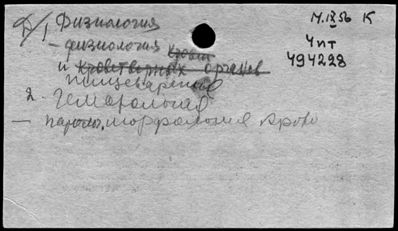 1 Физиология
- физиология крови
и кроветворных органов
пищеварение
2. Гематология
- патоло, морфология крови
М.IX 56 К
Чит
494228